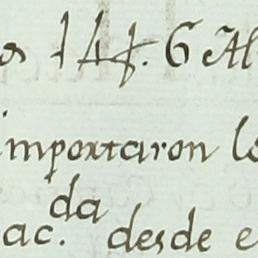 os 144. 6 Al
importaron lo
da
ac. desde e